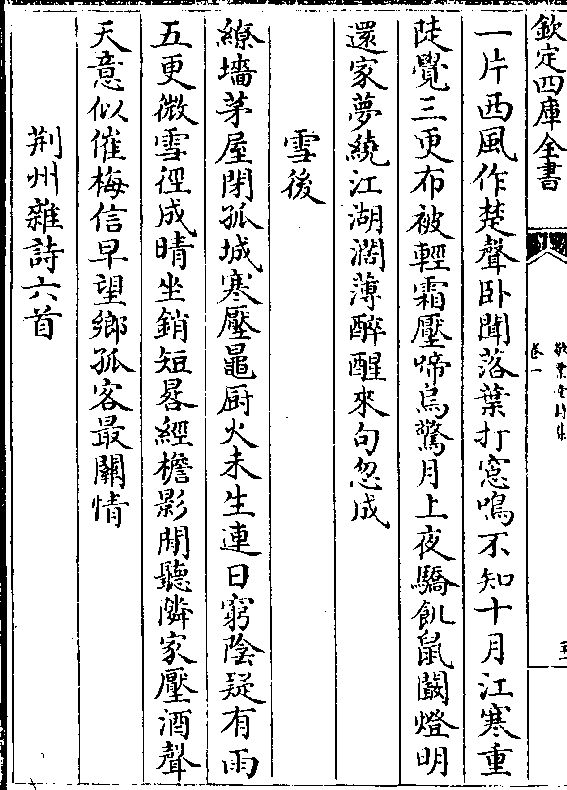 欽定四庫全書
敬業堂詩集
卷一
一片西風作楚聲卧聞落葉打窓鳴不知十月江寒重
陡覺三更布被輕霜壓啼烏驚月上夜驕飢鼠闞燈明
還家夢繞江湖濶薄醉醒來句忽成
雪後
繚墻茅屋閉孤城寒壓鼂厨火未生連日窮陰疑有雨
五更微雪徑成晴坐銷短晷經檐影閒聽隣家壓酒聲
天意似催梅信早望鄉孤客最關情
荆州雜詩六首